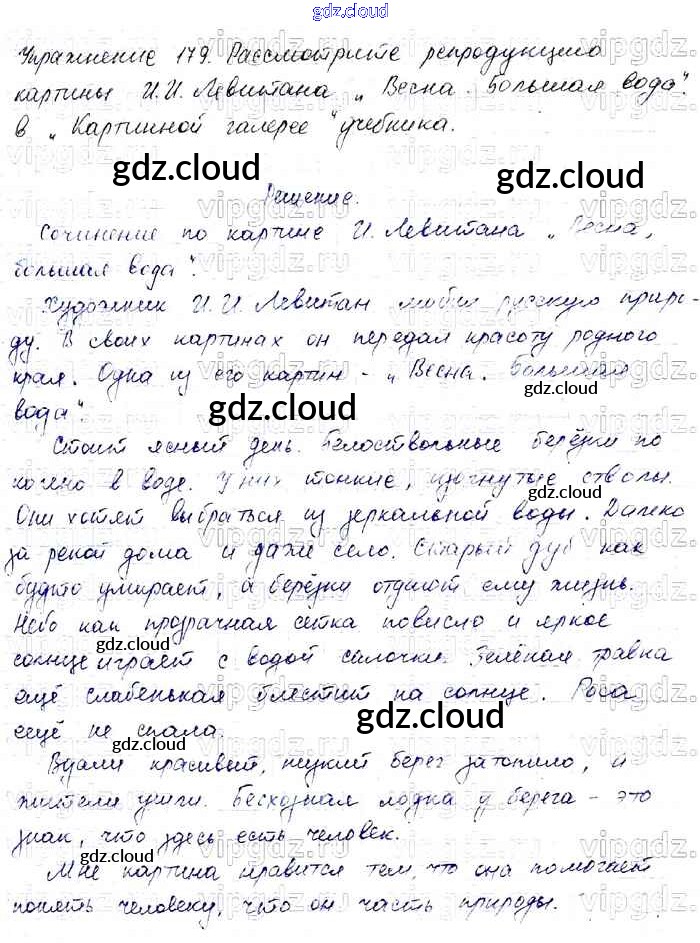 gdz.cloud
Упражнение 179. Рассмотрите репродукцию
картины И.И. Левитана „Весна. Большая вода".
в „Картинной галерее" учебника.
gdz.cloud gdz.cloud
Решение.
Сочинение по картине И. Левитана „Весна,
большая вода".
Художник И.И. Левитан любил русскую приро-
ду. В своих картинах он передал красоту родного
края. Одна из его картин - „Весна. Большая
вода".
gdz.cloud gdz.cloud
Стоит ясный день. Белоствольные берёзки по
колено в воде. У них тонкие, изогнутые стволы.
gdz.cloud
Они хотят выбраться из зеркальной воды. Далеко
за рекой дома и даже село. Старый дуб как
gdz.cloud
будто умирает, а берёзки отдают ему жизнь.
Небо как прозрачная сетка повисло и яркое
gdz.cloud
солнце играет с водой салочки. Зелёная травка
ещё слабенькая блестит на солнце. Роса
gdz.cloud
ещё не спала.
gdz.cloud
Вдали красивый, низкий берег затопило, и
жители ушли. Бесхозная лодка у берега - это
знак, что здесь есть человек.
gdz.cloud gdz.cloud
Мне картина нравится тем, что она помогает
понять человеку, что он часть природы.